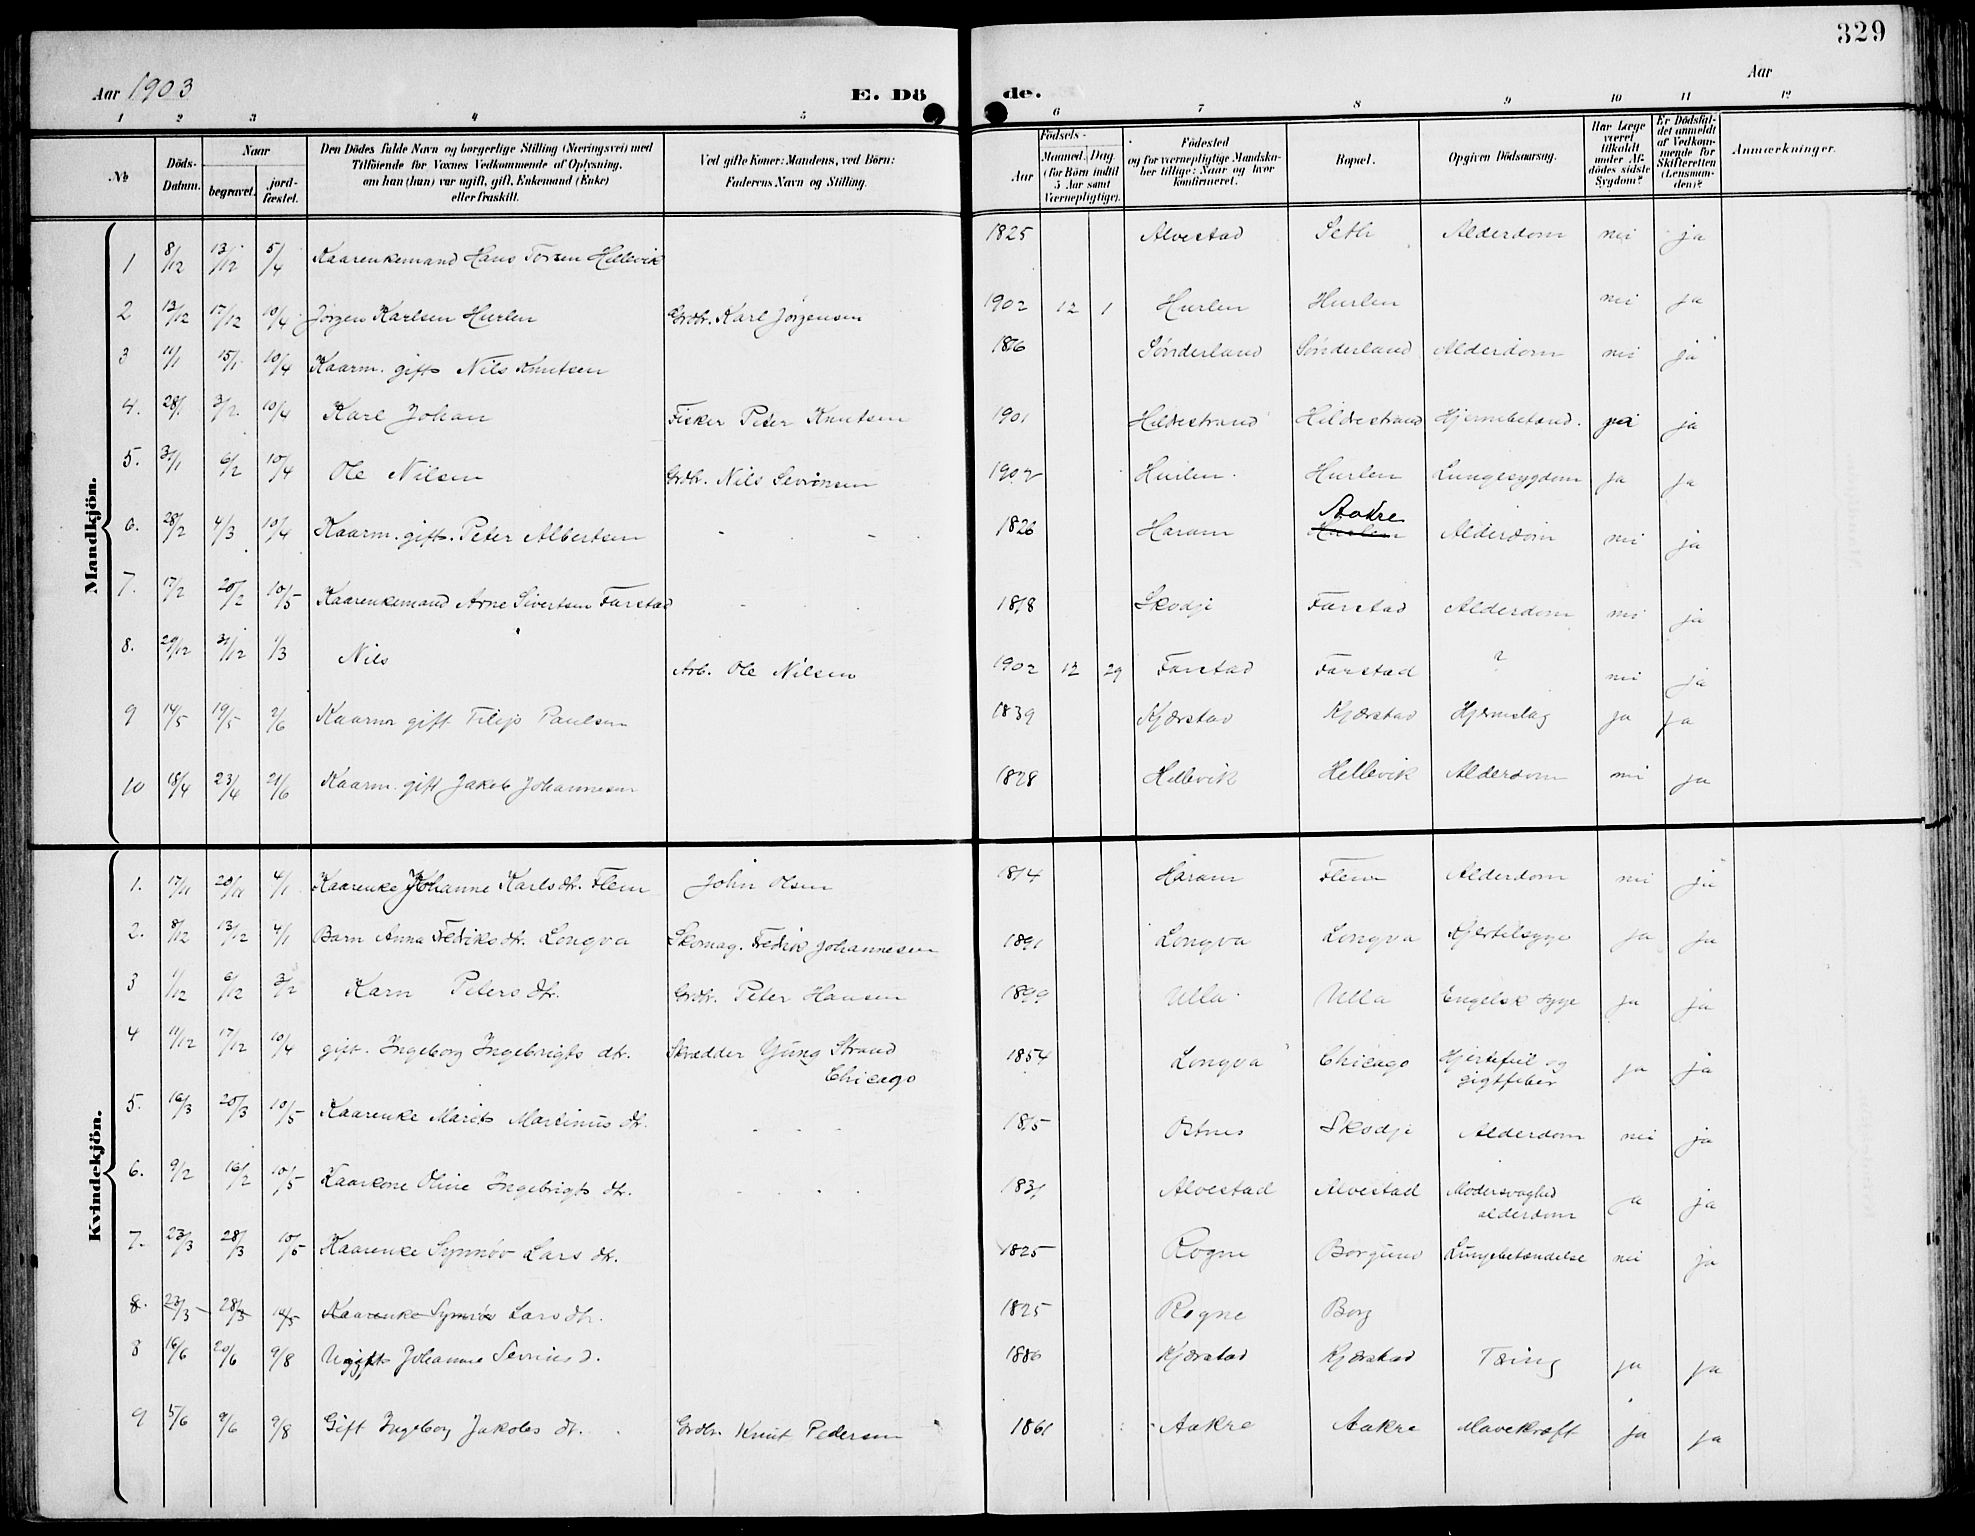 329
Aar 1903
E. Dö
de.
Aar
1 2 3 4 5 6 7 8 9 10 11 12
№
Döds-Datum.
Naar
begravet.
jord-fæstet.
Den Dödes fulde Navn og borgerlige Stilling (Næringsvei) med
Tilföiende for Voxnes Vedkommende af Oplysning,
om han (hun) var ugift, gift, Enkemand (Enke)
eller fraskilt.
Ved gifte Koner: Mandens, ved Börn:
Faderens Navn og Stilling.
Födsels-
Aar
Maaned. Dag.
(for Börn indtil
5 Aar samt
Værnepligtige).
Födested
og for værnepligtige Mandska-
ber tillige: Naar og hvor
konfirmeret.
Bopæl.
Opgiven Dödsaarsag.
Har Læge
været
tilkaldt
under Af-
dödes sidste
Sygdom?
Er Dödsfal-
det anmeldt
af Vedkom-
mende for
Skifteretten
(Lensman-
den)?
Anmærkninger.
Mandkjön.
1 8/12 13/12 5/4 Kaarenkemand Hans Hellevik 1825 Alvestad Alderdom nei ja
2 13/12 17/12 10/4 Jørgen Karlsen Hurlen Grdbr. Karl Jørgensen 1902 12 1 Hurlen Hurlen nei ja
3 11/1 15/1 10/4 Kaarm. gift Nils Knutsen Sønderland Sønderland Alderdom nei ja
4. 28/1 3/2 10/4 Karl Johan Fisker Peter Knutsen 1901 Hildestrand Hildestrand Hjernebetænd. ja
5. 31/1 6/2 10/4 Ole Nilsen Grdbr. Nils Sevrinsen 1902 Hurlen Hurlen Lungesygdom ja ja
6. 28/2 4/3 10/4 Kaarm. gift. Peter Albertsen 1826 Haram Aakre Alderdom nei ja
7. 17/2 20/2 10/5 Kaarenkemand Arne Sivertsen Farstad 1818 Skodje Farstad Alderdom nei ja
8. 29/12 31/12 1/3 Nils Arb. Ole Nilsen 1902 12 29 Farstad Farstad ? nei ja
9 14/5 19/5 2/6 Kaarm gift Filip Paulsen 1839 Kjærstad Kjærstad Hjerneslag ja ja
10 18/4 23/4 21/6 Kaarm. gift Jakob Johannesen 1828 Hellevik Hellevik Alderdom nei ja
Kvindekjön.
1. 17/11 20/11 4/1 Kaarenke Johanne Karlsdtr. Flem John Olsen 1814 Haram Flem Alderdom nei ja
2. 8/12 13/12 4/1 Barn Anna Fedriksdtr. Longva Skomag. Fedrik Johannesen 1891 Longva Longva ja ja
3 1/12 6/12 3/2 Karn Petersdtr. Grdbr. Peter Hansen 1899 Ulla Ulla Engelsk syge ja ja
4 11/12 17/12 10/4 gift. Ingeborg Ingebrigtsdtr. Skrædder Strand Chicago 1854 Longva Chicago Hjertefeil og gigtfeber ja ja
5. 16/3 20/3 10/5 Kaarenke Marit Martinusdtr. 1815 Skodje Alderdom nei ja
6. 9/2 16/2 10/5 Kaarkone Oline Ingebrigtsdtr. 1831 Alvestad Alvestad Modersvaghed alderdom ja ja
7. 23/3 28/3 10/5 Kaarenke Synnøv Larsdtr. 1825 Rogne Borgund Lungebetændelse nei ja
8. 23/3 28/3 Kaarenke Synnøv Larsdtr. 1825 Rogne Borg
8 16/6 20/6 9/8 Ugift Johanne Sevrinsd. 1886 Kjærstad Kjærstad Tæring ja ja
9 5/6 9/6 9/8 Gift Ingeborg Jakobsdt. Grdbr. Knut Pedersen 1861 Aakre Aakre Mavekræft ja ja